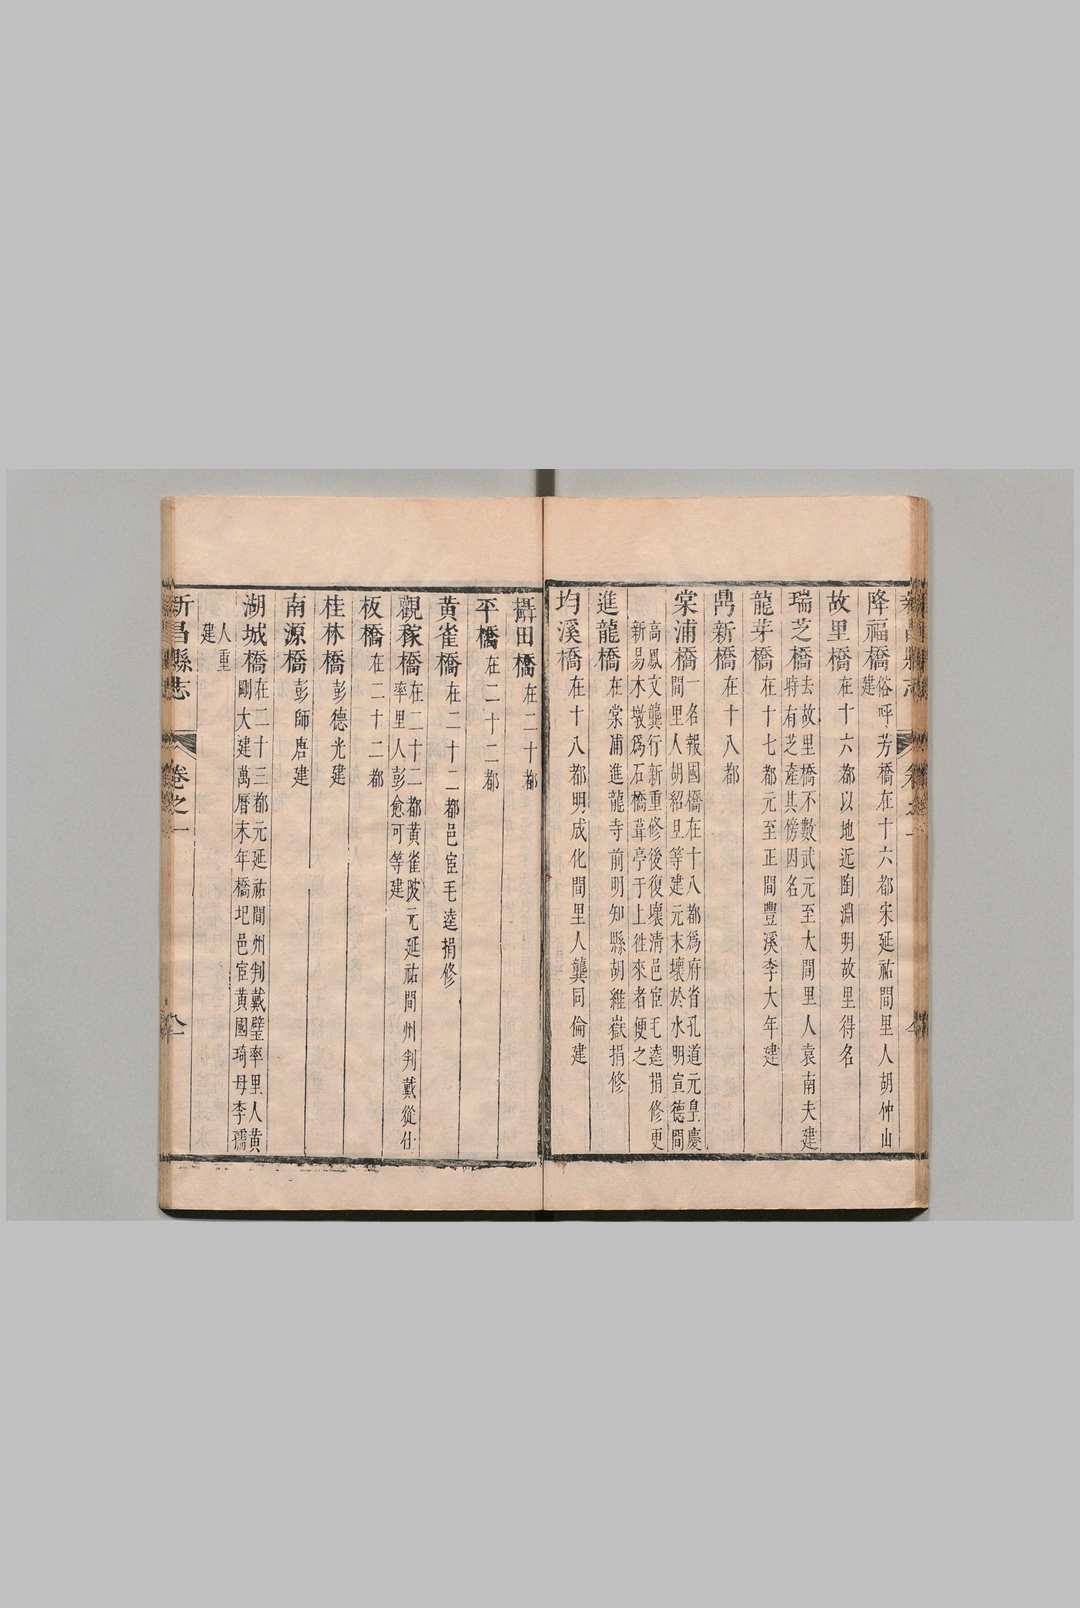 降福橋俗呼芳橋在十六都宋延祐間里人胡仲山
建
故里橋在十六都以地近陶淵明故里得名
瑞芝橋去故里橋不數武元至大間里人袁南夫建
時有芝產其傍因名
龍芽橋在十七都元至正間豐溪李大年建
鼎新橋在十八都
棠浦橋一名報國橋在十八都爲府省孔道元皇慶
間里人胡紹旦等建元末壞於水明宣德間
高鳳文龔行新重修後復壞清邑宦毛逵捐修更
新易木墩爲石橋葺亭于上徃來者便之
進龍橋在棠浦進龍寺前明知縣胡維嶽捐修
均溪橋在十八都明成化間里人龔同倫建
攝田橋在二十都
平橋在二十二都
黃雀橋在二十二都邑宦毛逵捐修
觀稼橋在二十二都黃雀陂元延祐間州判戴從仕
率里人彭愈可等建
板橋在二十二都
桂林橋彭德光建
南源橋彭師唐建
湖城橋在二十三都元延祐間州判戴璧率里人黃
剛大建萬曆末年橋圯邑宦黃國琦母李孺
人重
建
新昌縣志 卷之一 八